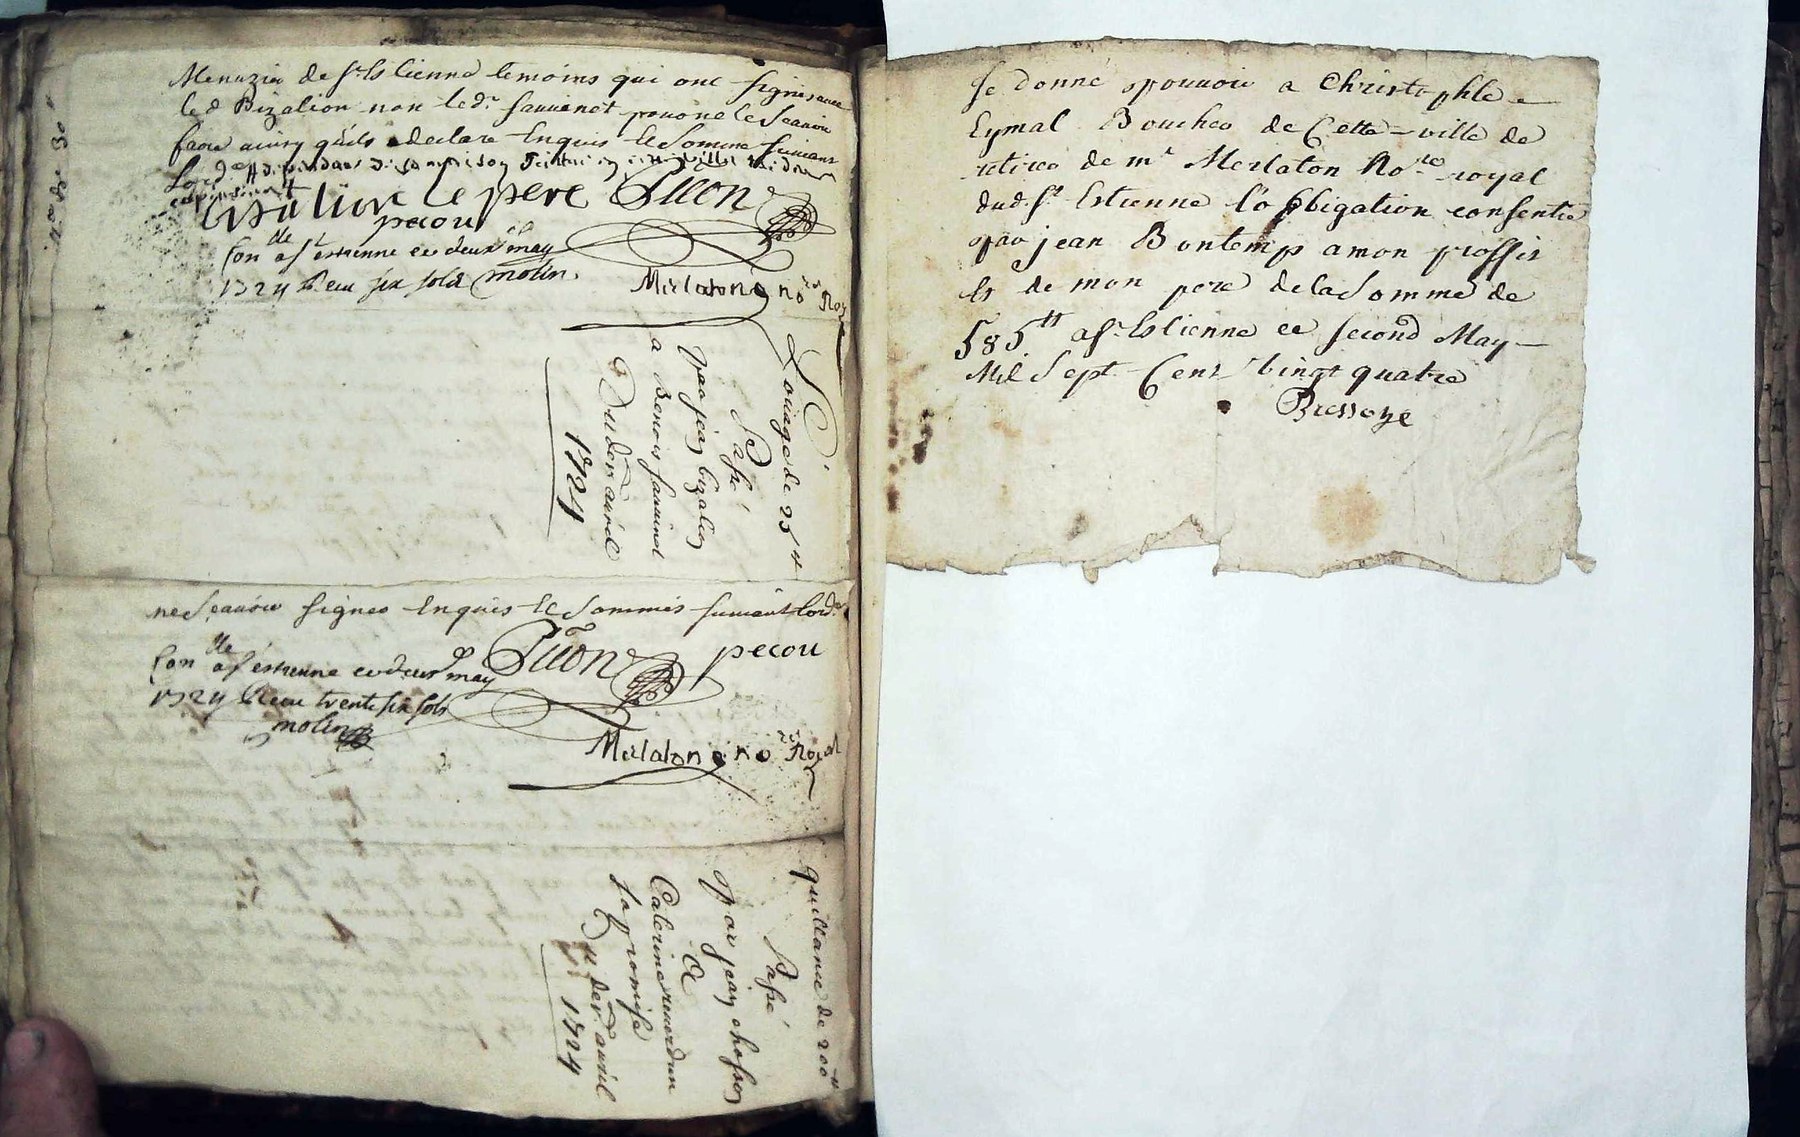 Menuzier de St Estienne temoins qui ont signé avec
led Bizalion non led. sauvinet pour ne le scavoir
faire ainsy qu'ils declare Enquis le somme suivant
Lord.
Bizalion le pere Guion
pecou
Con.lle a St estienne ce deux may
1724 Receu six sols molin.
Merlaton no.re Royal
Louage de 25 tt
Passé
par jean bizalion
a Benoit sauvinet
Du der. avril
1724
ne scavoir signer Enquis le sommés suivant lord.
Guion pecou
Con.lle a St estienne ce deux may
1724 Receu trente six sols
molin
Merlaton no.re Royal
quittance de 200 tt
Passé
par jean chosson
a
Caterine verdun
sa promise
Du der. avril
1724
Je donne pouvoir a Christophle
Eymal Boucher de Cette ville de
retirer de mr Merlaton No.re royal
dud St Estienne l'obligation consentie
par jean Bontemps a mon proffit
et de mon pere de la Somme de
585 tt a St Estienne ce second May
Mil Sept Cent vingt quatre
Bressoye